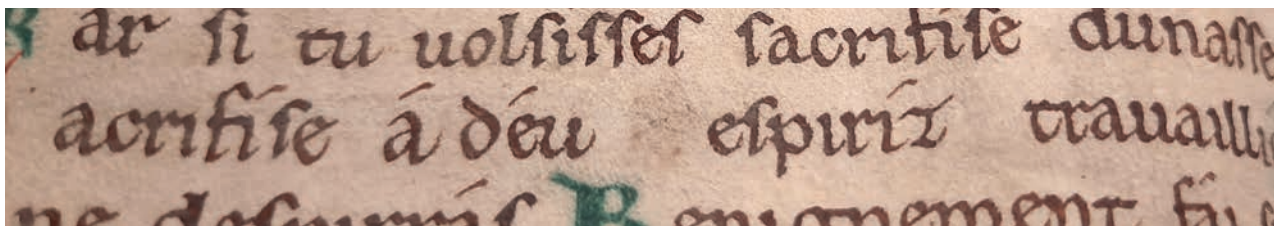 Kar si tu uolsisses sacrifise dunasse
acrifise á déu espirit trauailli
ne despurris Benignement fai